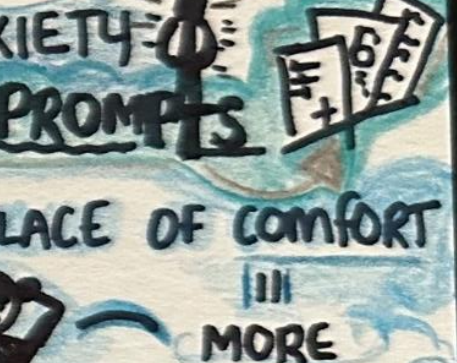 XIETY
PROMPTS
LACE OF COMFORT
MORE